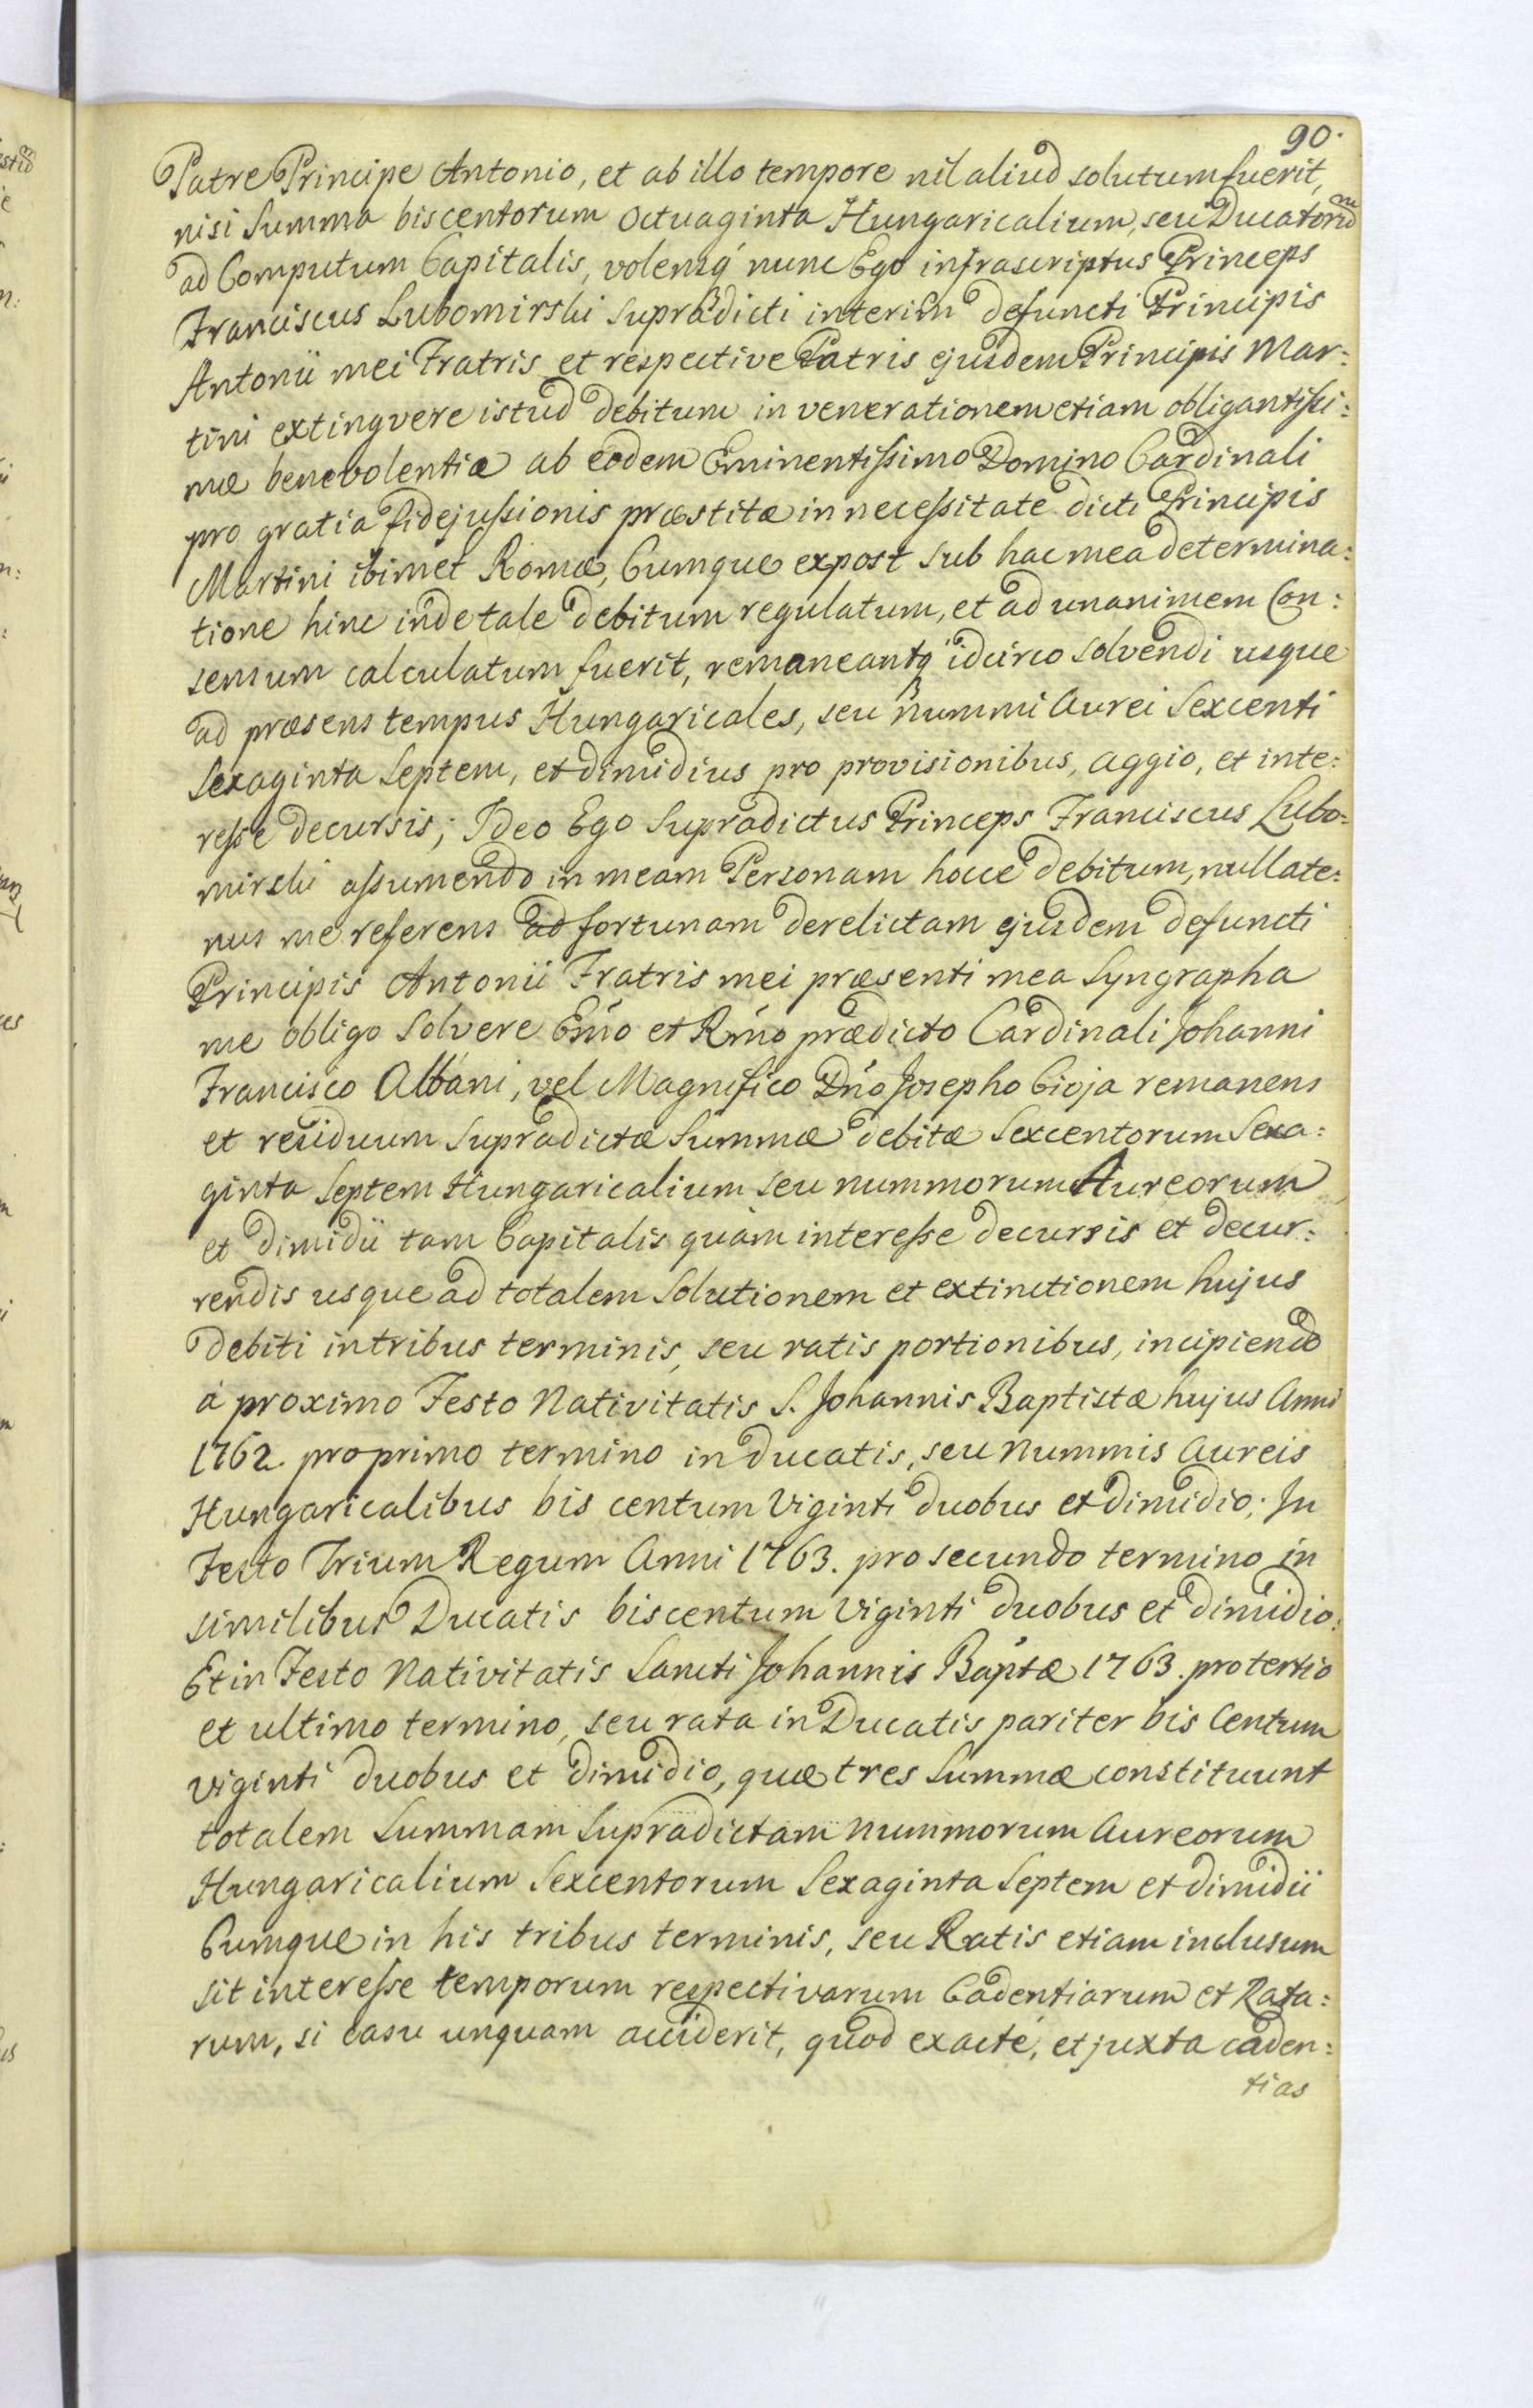 90.
Patre Principe Antonio, et ab illo tempore nil aliud solutum fuerit,
nisi Summa biscentorum Octuaginta Hungaricalium, seu Ducatorũ
ad Computum Capitalis, volensq́ nunc Ego infrascriptus Princeps
Franciscus Lubomirski Supradicti interim defuncti Principis
Antonii mei Fratris et respective Patris ejusdem Principis Mar:
tini extingvere istud debitum in venerationem etiam obligantissi:
mæ benevolentiæ ab eodem Eminentissimo Domino Cardinali
pro gratia fidejussionis præstitæ in necessitate dicti Principis
Martini ibimet Romæ, Cumque expost sub hac mea determina:
tione hinc inde tale debitum regulatum, et ad unanimem Con:
sensum calculatum fuerit, remaneantq́ idcirco solvendi usque
ad præsens tempus Hungaricales, seu nummi Aurei Sexcenti
Sexaginta Septem, et dimidius pro provisionibus, aggio, et inte:
resse decursis; Ideo Ego Supradictus Princeps Franciscus Lubo:
mirski assumendo in meam Personam hocce debitum, nullate:
nus me referens ad fortunam derelictam ejusdem defuncti
Principis Antonii Fratris mei præsenti mea Syngrapha
me obligo Solvere Em̃o et Rm̃o prædicto Cardinali Johanni
Francisco Albani, vel Magnifico Dño Josepho Cioja remanens
et residuum Supradictæ Summæ debitæ Sexcentorum Sexa:
ginta Septem Hungaricalium seu nummorum Aureorum
et dimidii tam Capitalis quàm interesse decursis et decur:
rendis usque ad totalem Solutionem et extinctionem hujus
debiti in tribus terminis, seu ratis portionibus, incipiendo
à proximo Festo Nativitatis S. Johannis Baptistæ hujus Anni
1762. pro primo termino in Ducatis, seu Nummis Aureis
Hungaricalibus bis centum Viginti duobus et dimidio; In
Festo Trium Regum Anni 1763. pro secundo termino in
similibus Ducatis biscentum Viginti duobus et dimidio:
Et in Festo Nativitatis Sancti Johannis Baptæ 1763. pro tertio
et ultimo termino, seu rata in Ducatis pariter bis Centum
viginti duobus et dimidio, quæ tres Summæ constituunt
totalem Summam Supradictam Nummorum Aureorum
Hungaricalium Sexcentorum Sexaginta Septem et dimidii
Cumque in his tribus terminis, seu Ratis etiam inclusum
sit interesse temporum respectivarum Cadentiarum et Rata:
rum, si casu unquam acciderit, quod exacté, et juxta caden:
tias